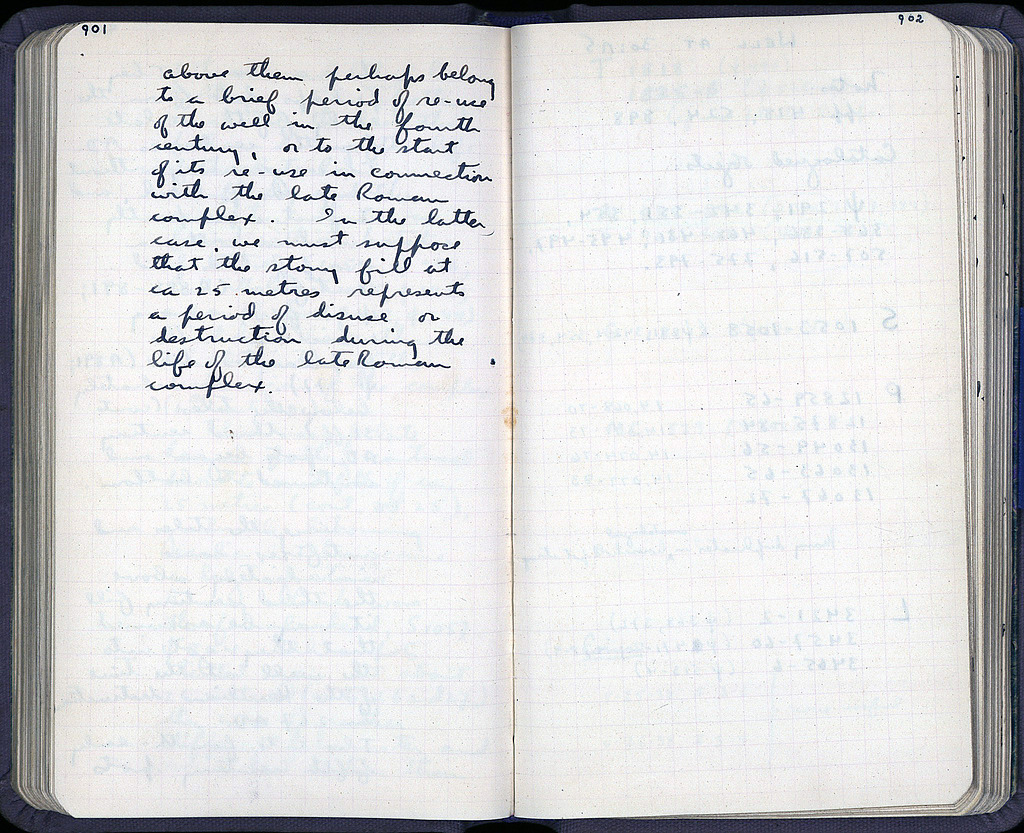 901
above them perhaps belong
to a brief period of re-use
of the well in the fourth
century, or to the start
of its re-use in connection
with the late Roman
complex. In the latter
case, we must suppose
that the stony fill at
ca 25 metres represents
a period of disuse or
destruction during the
life of the late Roman
complex.
902